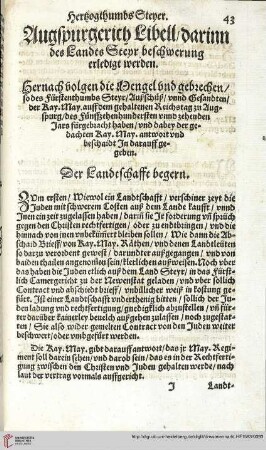 Hertzogthumbs Steyer.
43
Augspurgerich Libell / darinn
des Landes Steyr beschwerung
erledigt werden.
Hernach volgen die Mengel vnd gebrechen /
so des Fürstenthumbs Steyr / Außschüß / vnnd Gesandten /
der Kay. May. auff dem gehaltenen Reichstag zu Aug-
spurg / des Fünffzehenhundersten vnnd zehenden
Jars fürgebracht haben / vnd dabey der ge-
dachten Kay. May. antwort vnd
beschaidt In darauff ge-
geben.
Der Landtschafft begern.
Zum ersten / Wiewol ein Landtschafft / verschiner zeyt die
Juden mit schweren Costen auß dem Landt kaufft / vnnd
Inen ein zeyt zugelassen haben /
gegen den Christen rechtfertigen / oder zu endtbringen / vnd die
hinnach von inen vnbekümert bleiben sollen / Wie dann die Ab-
schaidt Brieff von Kay. May. Räthen / vnd denen Landtleüten
so darzu verordent gewest / darumben auß gegangen / vnd von
baiden thailen angenomen sein / kierlichen außweisen. Noch vber
das haben die Juden etlich auß dem Land Steyr / in das Fürst-
lich Camergericht zu der Newenstat geladen / vnd vber solich
Contract vnd abschiedt brieff / vnbillicher weiß in kostung ge-
fürt. Ist einer Landtschafft vnderthenig bitten / söllich der Ju-
den ladung vnd rechtfertigung / gnedigklich abzustellen / vñ für-
ter darüber kainerley beuelch außgehen zulassen / noch zugestat-
ten / Sie also wider gemelten Contract von den Juden weiter
beschwert / oder vmbgefürt werden.
Die Kay. May. gibt darauff antwort / das jr May. Regi-
ment soll darein sehen / vnd darob sein / das es in der Rechtferti-
gung zwischen den Christen vnd Juden gehalten werde / nach
laut der vertrag vormals auffgericht.
J
Landt-